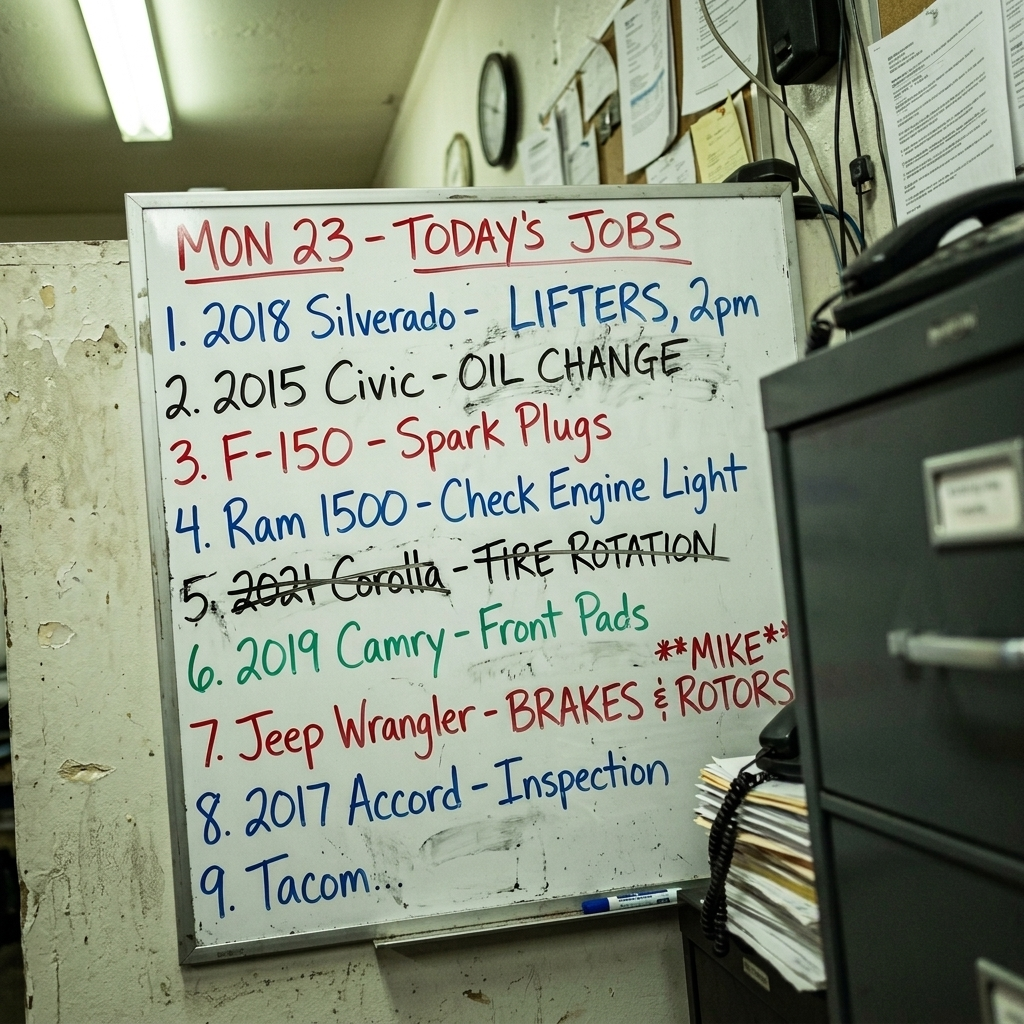 MON 23 - TODAY'S JOBS
1. 2018 Silverado - LIFTERS, 2pm
2. 2015 Civic - OIL CHANGE
3. F-150 - Spark Plugs
4. Ram 1500 - Check Engine Light
5. 2021 Corolla - TIRE ROTATION
6. 2019 Camry - Front Pads
**MIKE**
7. Jeep Wrangler - BRAKES & ROTORS
8. 2017 Accord - Inspection
9. Tacom...